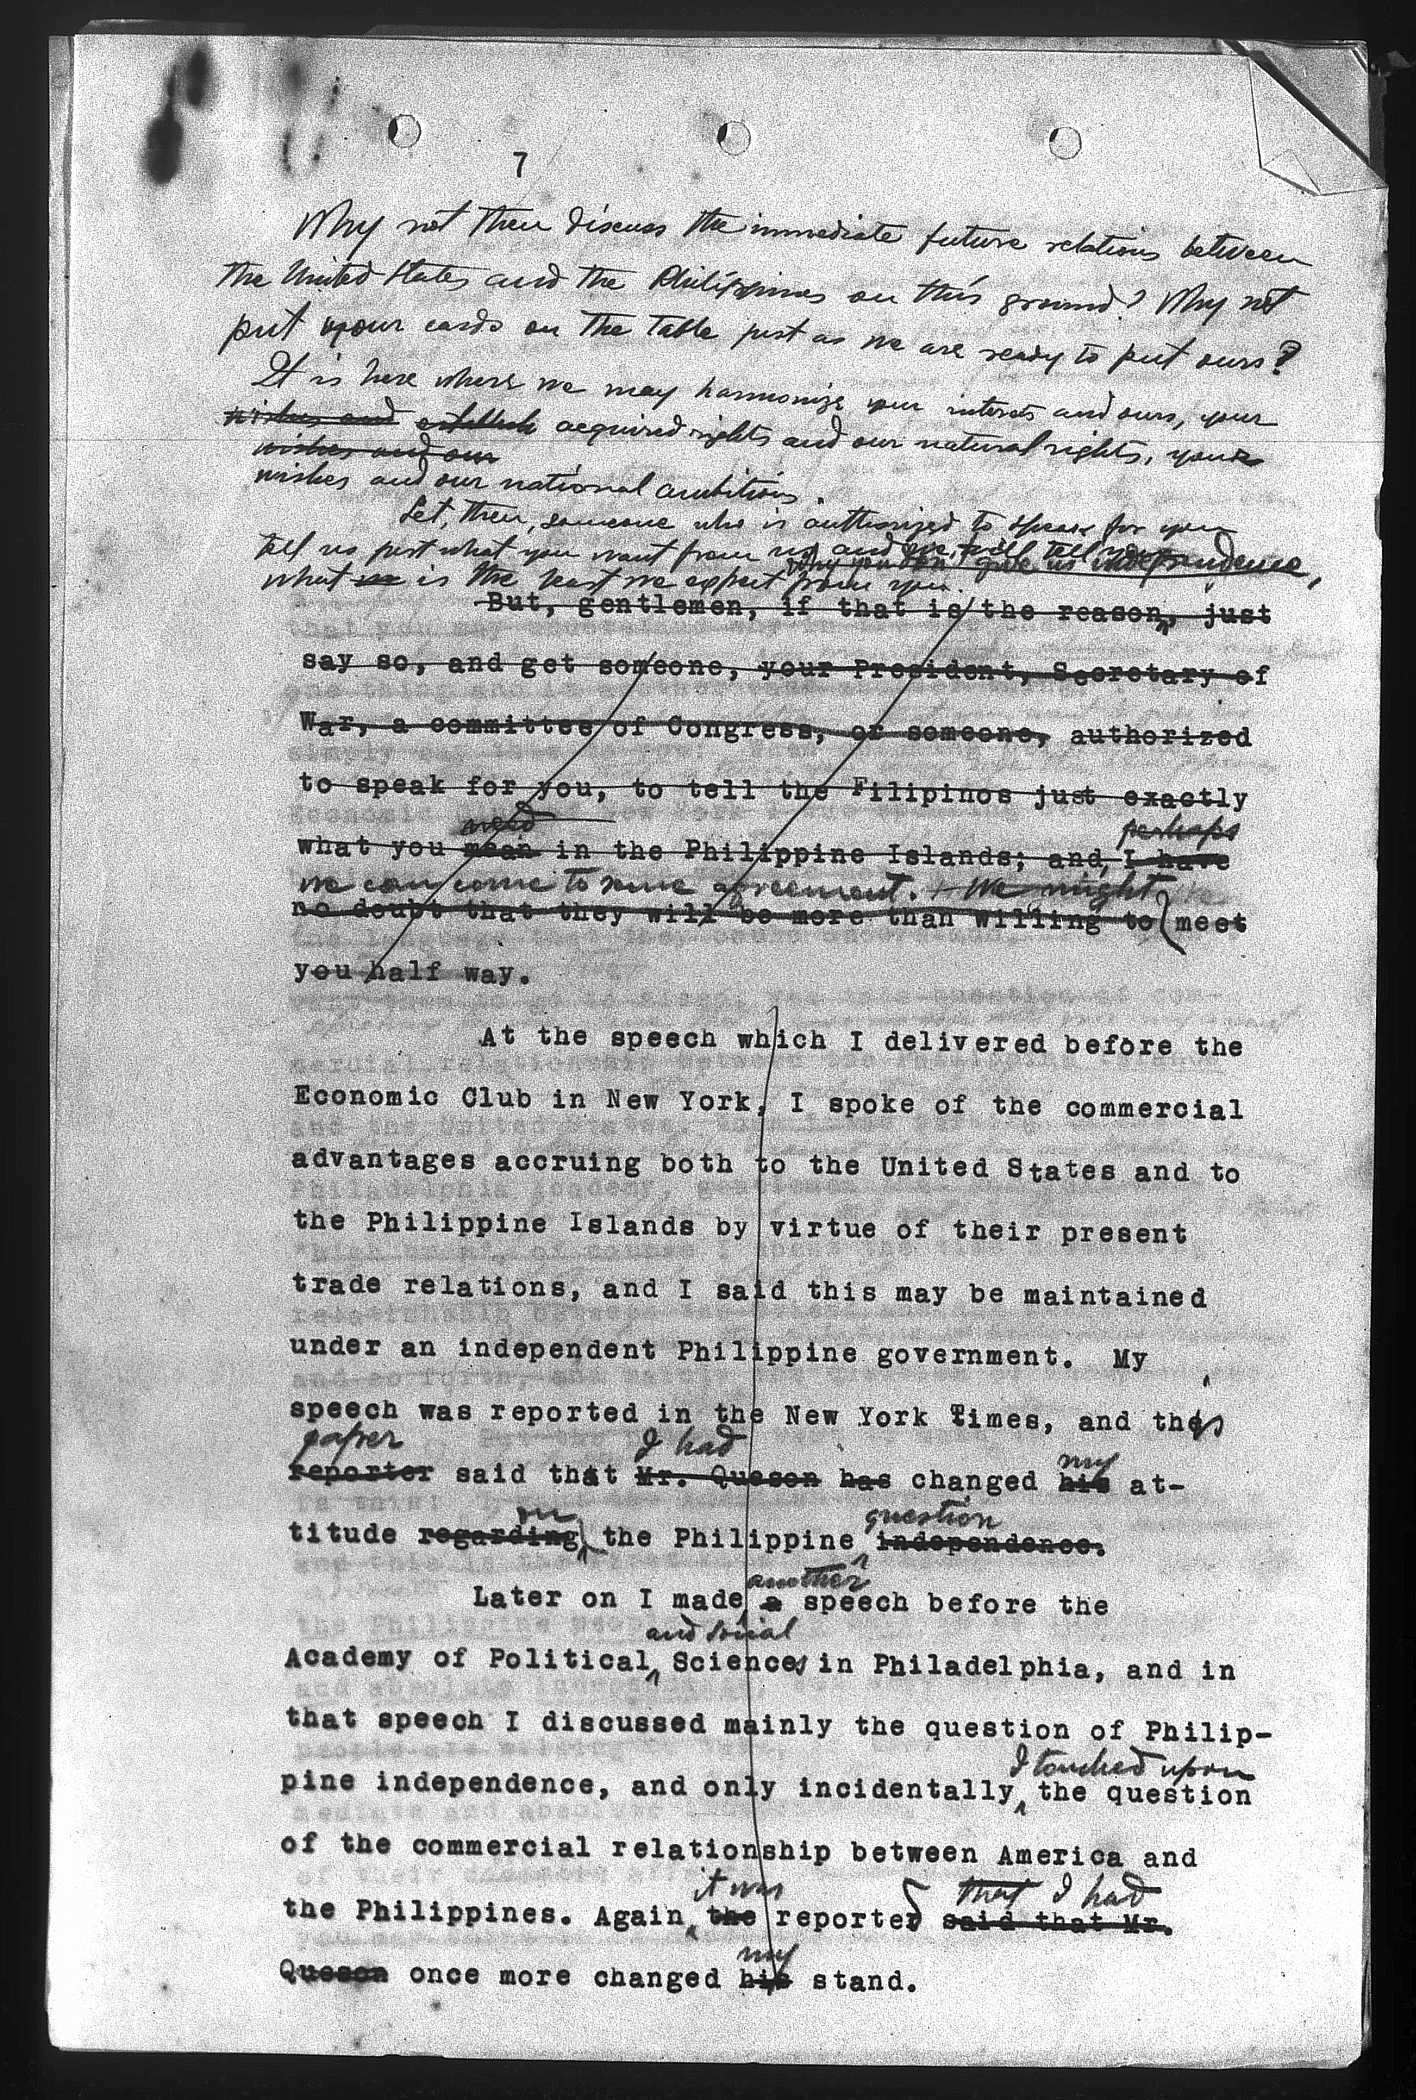 7
Why not then discuss the immediate future relations between
the United States and the Philippines on this ground? Why not
put your cards on the table just as we are ready to put ours?
It is here where we may harmonize your interests and ours, your
wishes and establish acquired rights and our natural rights, your
wishes and our
wishes and our national ambitions.
Let, then, someone who is authorized to speak for you
tell us just what you want from us, and we will tell you
why you don't give us independence,
what is the least we expect from you.
But, gentlemen, if that is the reason, just
say so, and get someone, your President, Secretary of
War, a committee of Congress, or someone, authorized
to speak for you, to tell the Filipinos just exactly
need
perhaps
what you mean in the Philippine Islands; and, I have
we can come to some agreement. We might
no doubt that they will be more than willing to meet
you half way.
At the speech which I delivered before the
Economic Club in New York, I spoke of the commercial
advantages accruing both to the United States and to
the Philippine Islands by virtue of their present
trade relations, and I said this may be maintained
under an independent Philippine government. My
speech was reported in the New York Times, and this
paper I had my
reporter said that Mr. Quezon has changed his at-
on question
titude regarding the Philippine independence.
another
Later on I made a speech before the
and social
Academy of Political Science, in Philadelphia, and in
that speech I discussed mainly the question of Philip-
I touched upon
pine independence, and only incidentally the question
of the commercial relationship between America and
it was that I had
the Philippines. Again the reported said that Mr.
my
Quezon once more changed his stand.